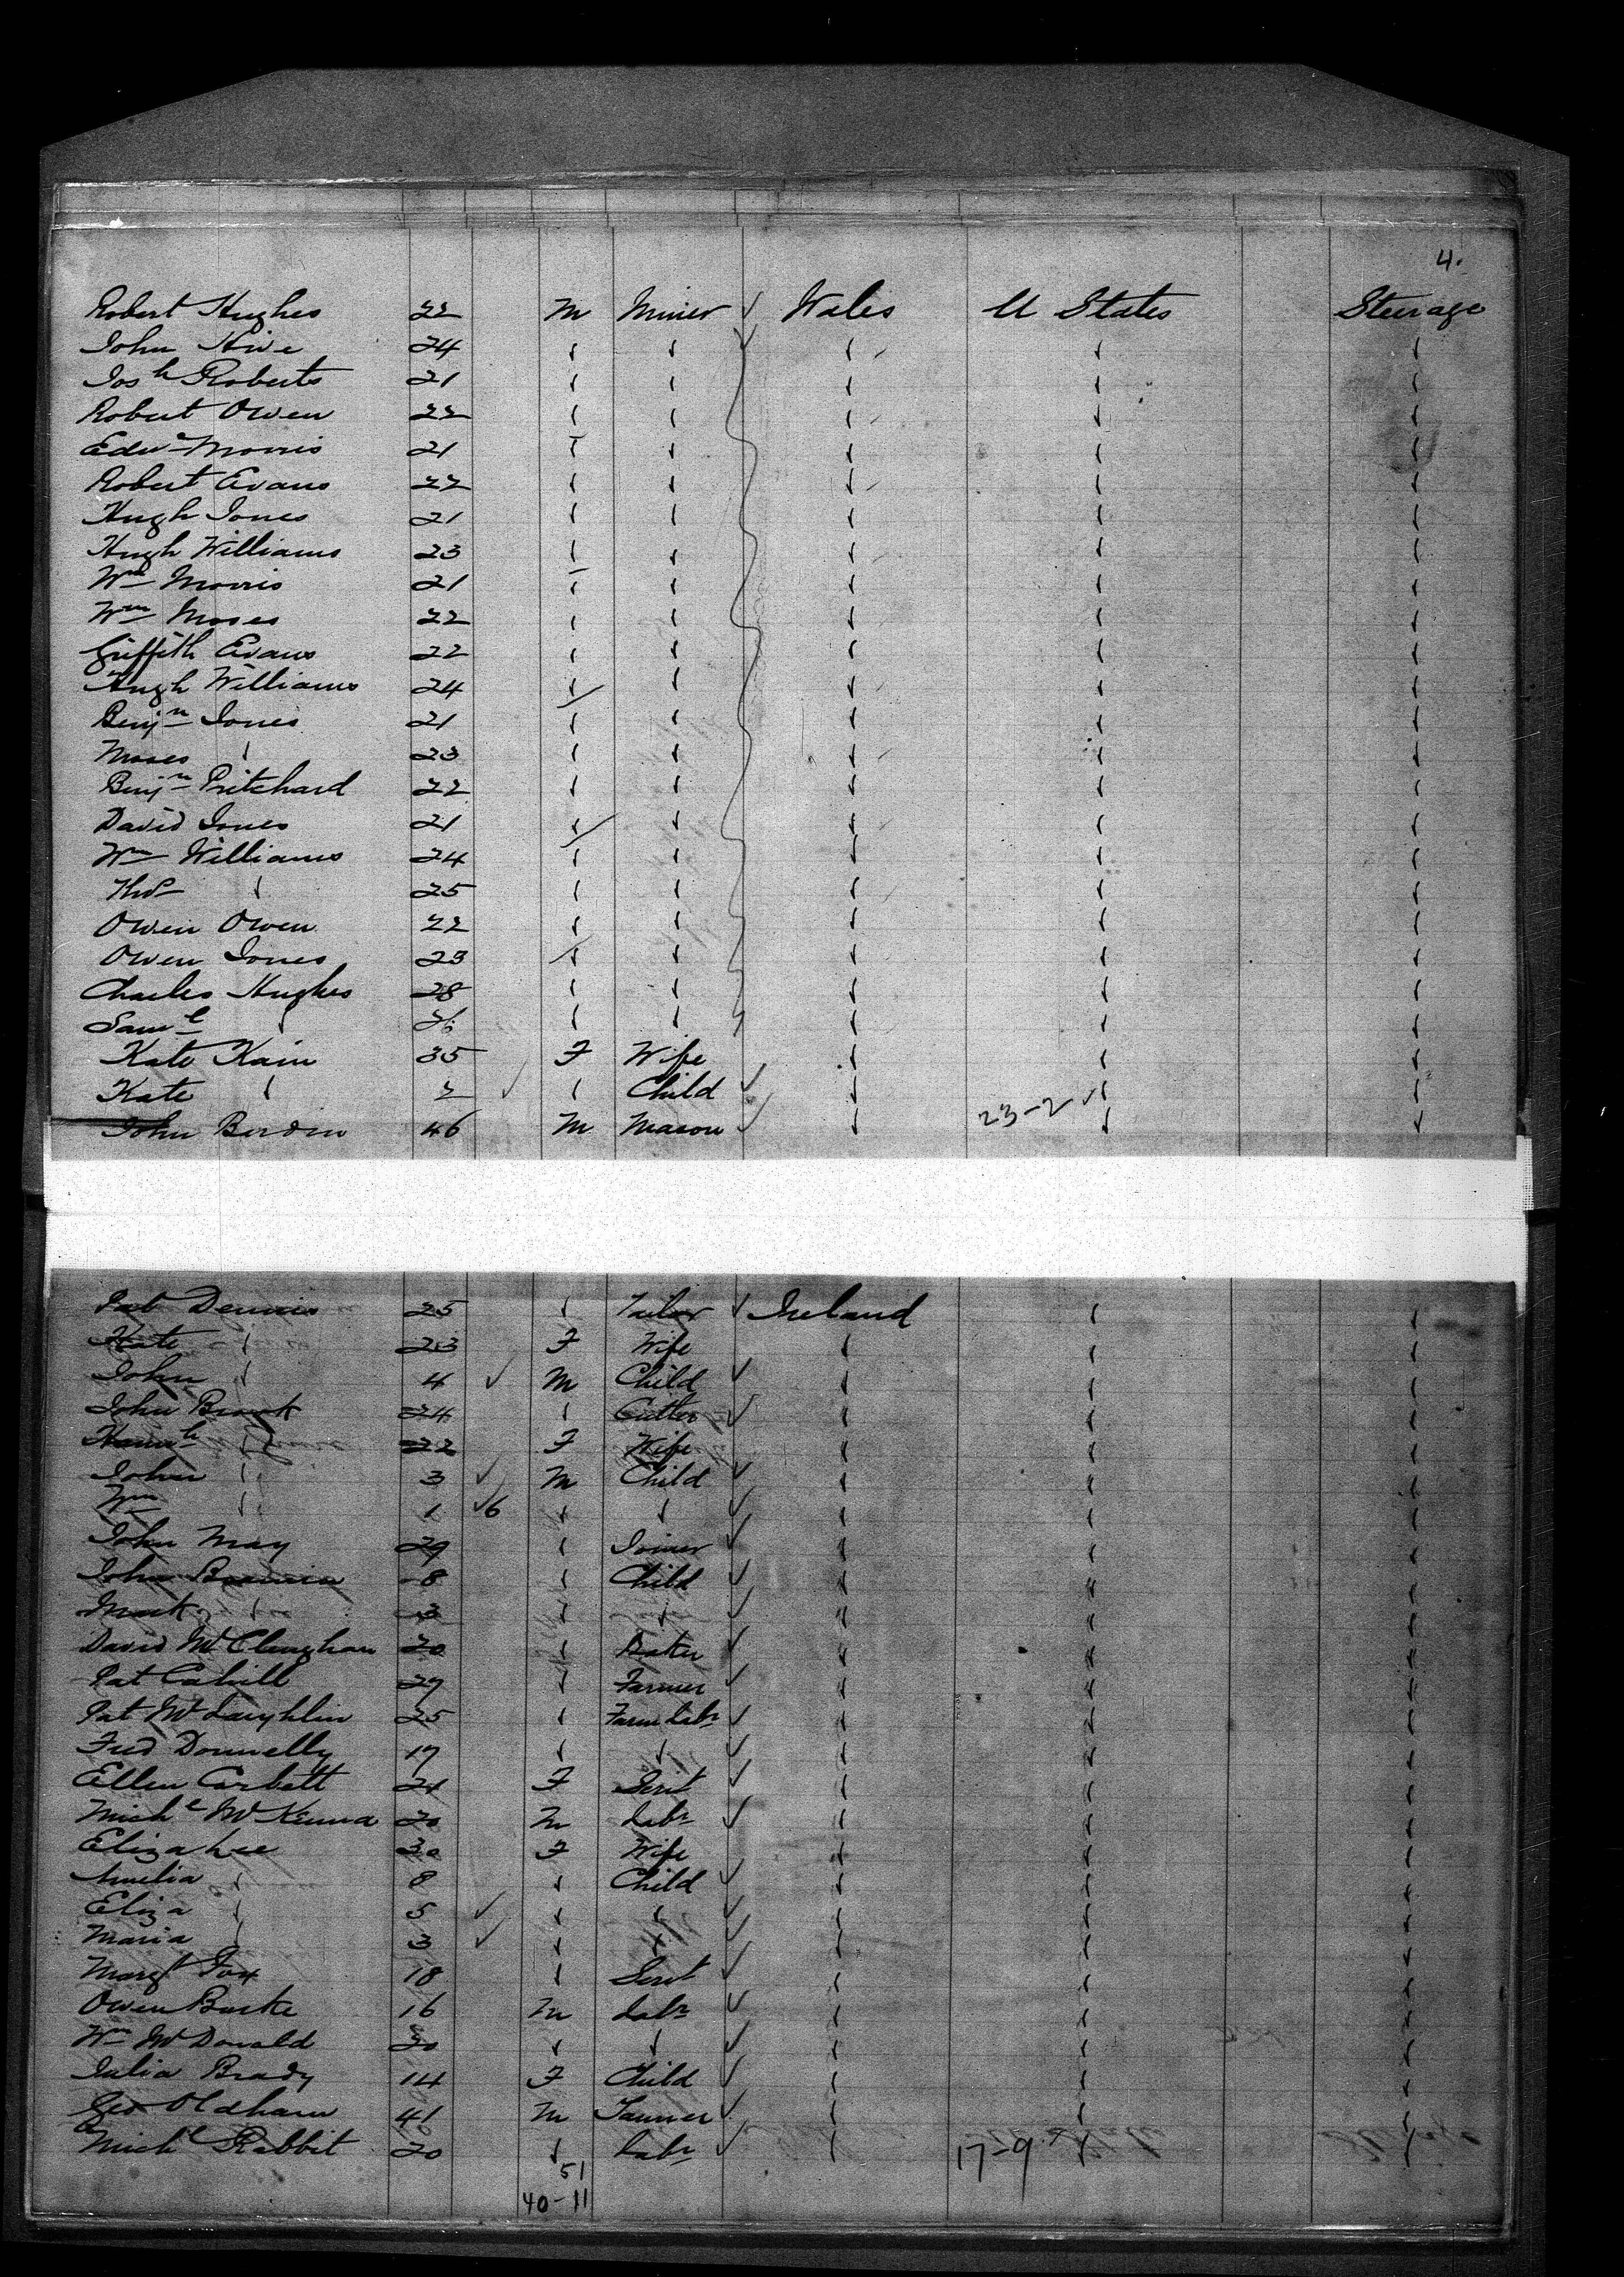 4.
Robert Hughes 22 M Miner ✓ Wales U States Steerage
John Hive 24 " " ✓ " " "
Josh Roberts 21 " " " " "
Robert Owen 22 " " " " "
Edwd Morris 21 " " " " "
Robert Evans 22 " " " " "
Hugh Jones 21 " " " " "
Hugh Williams 23 " " " " "
Wm Morris 21 " " " " "
Wm Moses 22 " " " " "
Griffith Evans 22 " " " " "
Hugh Williams 24 " " " " "
Benjn Jones 21 " " " " "
Moses " 23 " " " " "
Benjn Pritchard 22 " " " " "
David Jones 21 " " " " "
Wm Williams 24 " " " " "
Thos " 25 " " " " "
Owen Owen 22 " " " " "
Owen Jones 23 " " " " "
Charles Hughes 28 " " " " "
Saml " 26 " " " " "
Kate Kain 35 F Wife " " "
Kate " 2 ✓ " Child ✓ " 23-2 ✓ " "
John Burden 46 M Mason ✓ " " "
Pat Dennis 25 " Tailor ✓ Ireland " "
Kate " 23 F Wife " " "
John " 4 ✓ M Child ✓ " " "
John Brook 24 " Cutler ✓ " " "
Hannh " 22 F Wife " " "
John " 3 ✓ M Child ✓ " " "
Wm " 1 ✓6 " " ✓ " " "
John May 29 " Joiner ✓ " " "
John 8 " Child ✓ " " "
Mark " 3 " " ✓ " " "
David McClenghan 20 " Baker ✓ " " "
Pat Cahill 27 " Farmer ✓ " " "
Pat McLaughlin 25 " Farm Labr ✓ " " "
Fred Donnelly 17 " " ✓ " " "
Ellen Corbett 21 F Servt ✓ " " "
Michl McKenna 20 M Labr ✓ " " "
Eliza Lee 30 F Wife " " "
Amelia " 8 " Child ✓ " " "
Eliza " 5 ✓ " " ✓ " " "
Maria " 3 ✓ " " ✓ " " "
Margt Fox 18 " Servt ✓ " " "
Owen Burke 16 M Labr ✓ " " "
Wm McDonald 20 " " ✓ " " "
Julia Brady 14 F Child ✓ " " "
Geo Oldham 41 M Tanner ✓ " " "
Michl Rabbit 20 " Labr ✓ " 17-9 " "
51
40-11